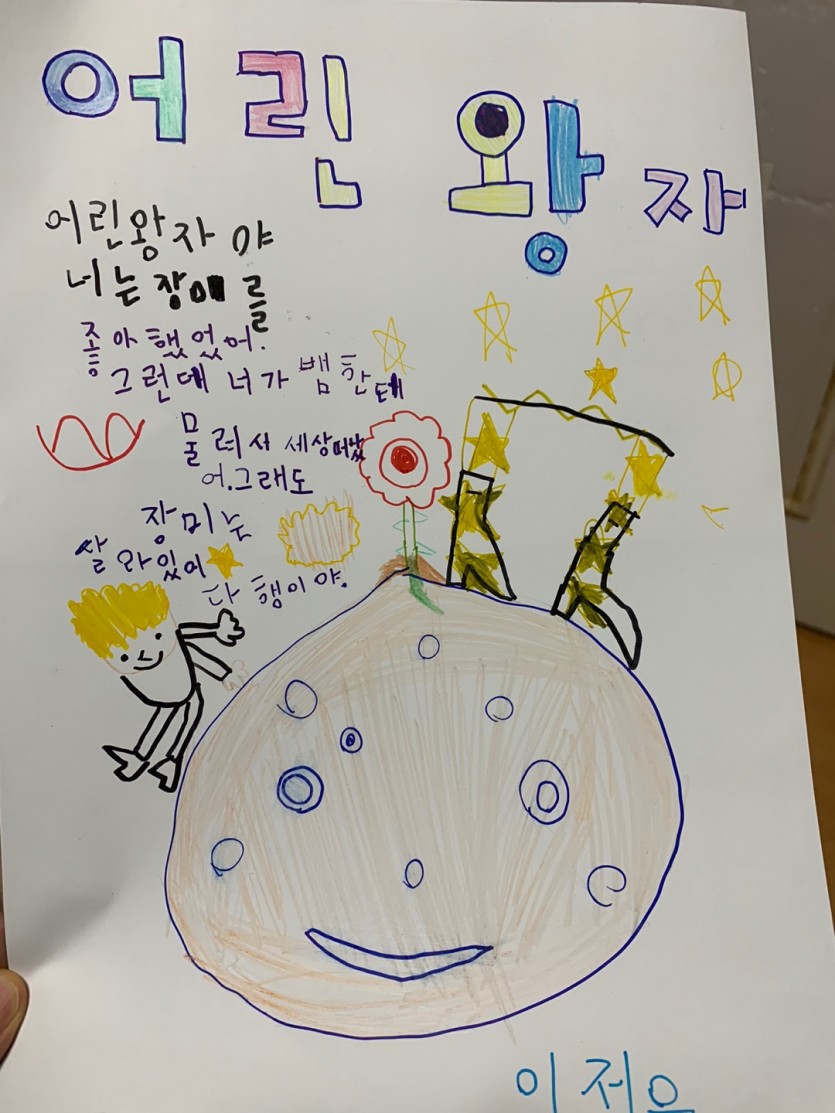 어린 왕자
어린왕자 야
너는 장미 를
좋아 했었어.
그런데 너가 뱀 한테
물려서 세상 떠났
어. 그래도
장미는
살아있어
다행이야.